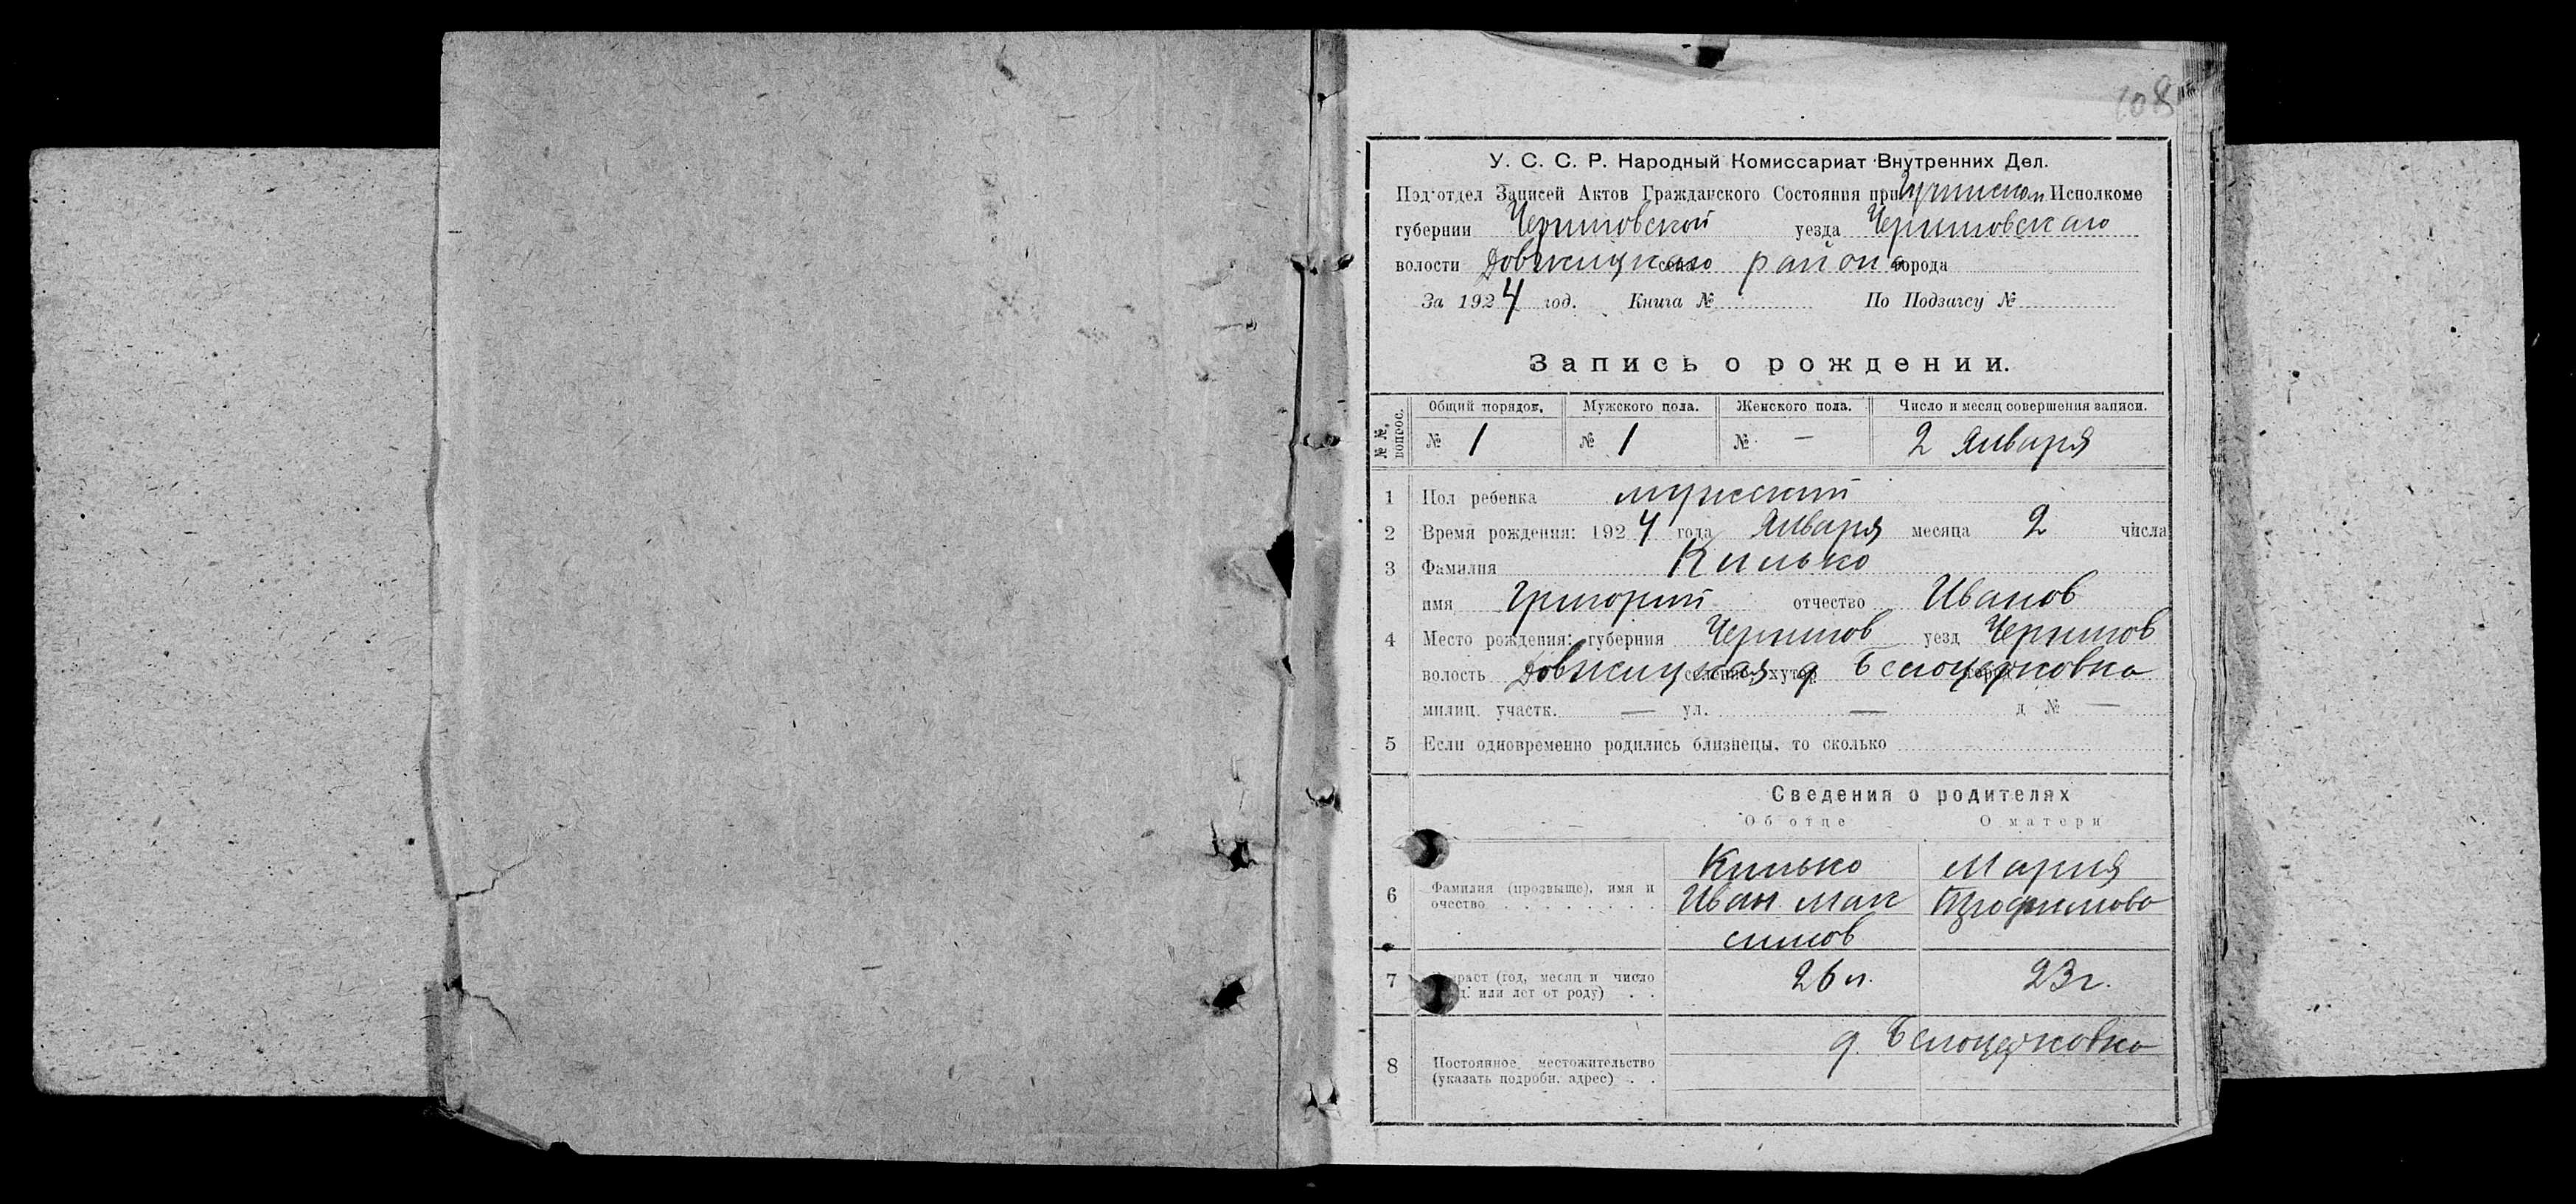 108
У. С. С. Р. Народный Комиссариат Внутренних Дел.
Под'отдел Записей Актов Гражданского Состояния при Исполкоме
губернии Черниговской уезда Черниговского
волости Довжицкого села района города
За 1924 год. Книга № По Подзагсу №
Запись о рождении.
№ №, вопрос. Общий порядов, Мужского пола. Женского пола. Число и месяц совершения записи.
№ 1 № 1 № — 2 Января
1 Пол ребенка мужский
2 Время рождения: 1924 года Января месяца 2 числа
3 Фамилия Килько
имя Григорий отчество Иванов
4 Место рождения: губерния Чернигов уезд Чернигов
волость Довжицкая селение, хутор д Белоцерковка
милиц. участк. — ул. — д № —
5 Если одновременно родились близнецы, то сколько
Сведения о родителях
Об отце О матери
6 Фамилия (прозвыще), имя и
очество
Килько Мария
Иван Мак Трофимова
симов
7 раст (год, месяц и число
или лет от роду) 26 л. 23 г.
8 Постоянное местожительство
(указать подробн. адрес) д. Белоцерковка